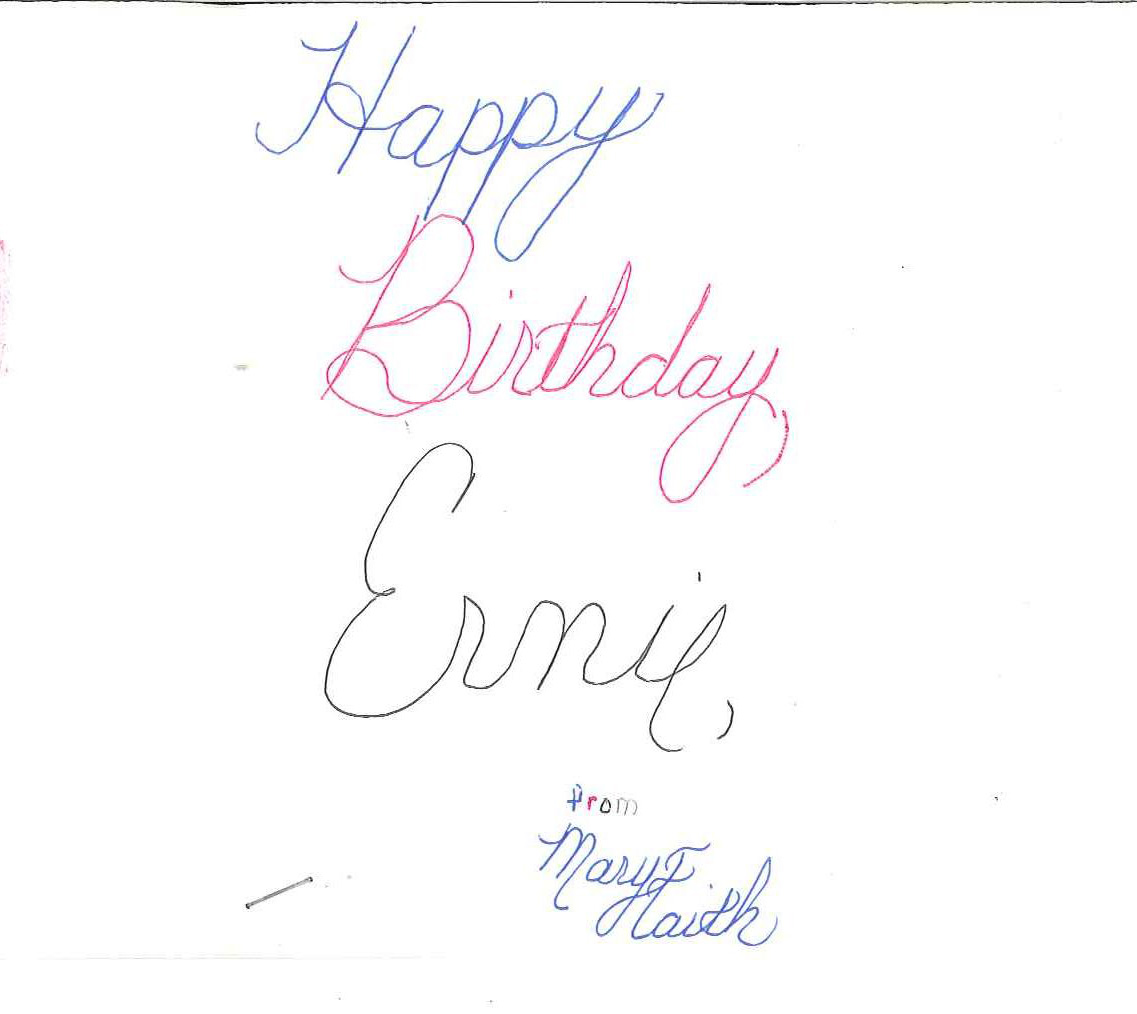 Happy
Birthday,
Ernie,
from
Mary Faith